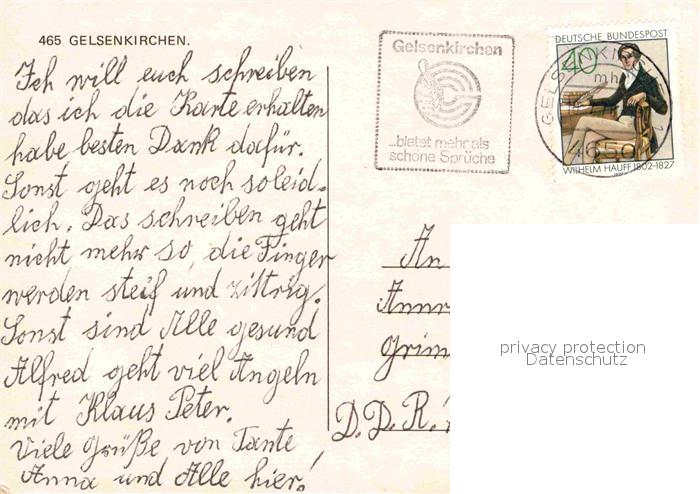 465 GELSENKIRCHEN.
Ich will euch schreiben
das ich die Karte erhalten
habe besten Dank dafür.
Sonst geht es noch soleid-
lich. Das schreiben geht
nicht mehr so, die Finger
werden steif und zittrig.
Sonst sind Alle gesund
Alfred geht viel Angeln
mit Klaus Peter.
Viele Grüße von Tante
Anna und Alle hier!
Gelsenkirchen
...bietet mehr als
schöne Sprüche
DEUTSCHE BUNDESPOST
40
WILHELM HAUFF 1802-1827
GELSENKI
mh
4650
An
Annr
Grim
D.D.R.
privacy protection
Datenschutz